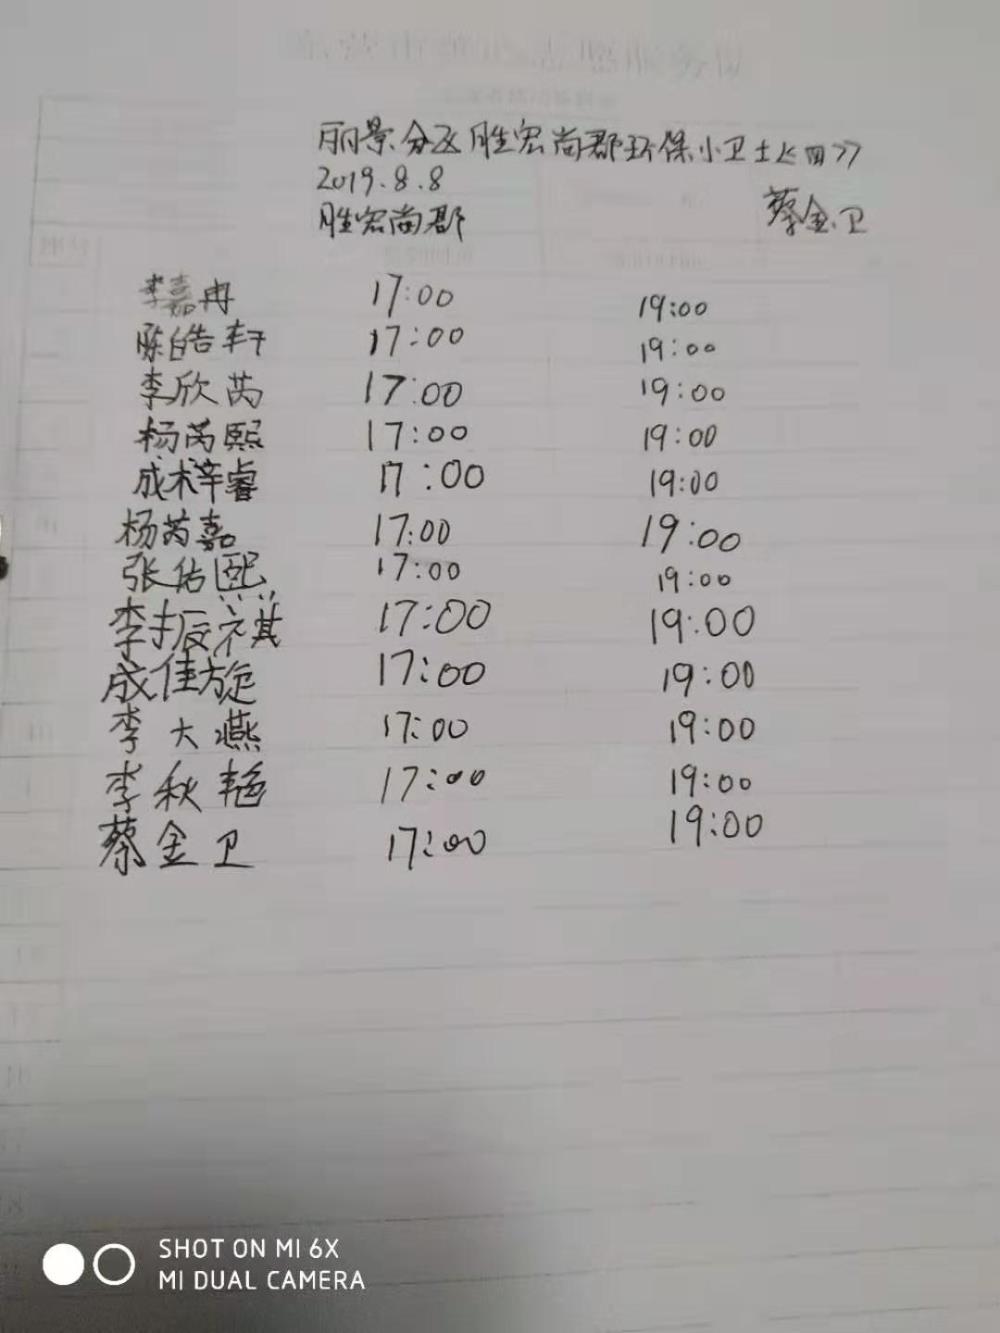 丽景分区胜宏尚郡环保小卫士《四》
2019.8.8
胜宏尚郡 蔡金卫
李嘉冉 17:00 19:00
陈皓轩 17:00 19:00
李欣芮 17:00 19:00
杨芮熙 17:00 19:00
成梓睿 17:00 19:00
杨芮嘉 17:00 19:00
张佑熙 17:00 19:00
李振祺 17:00 19:00
成佳旋 17:00 19:00
李大燕 17:00 19:00
李秋艳 17:00 19:00
蔡金卫 17:00 19:00
SHOT ON MI 6X
MI DUAL CAMERA